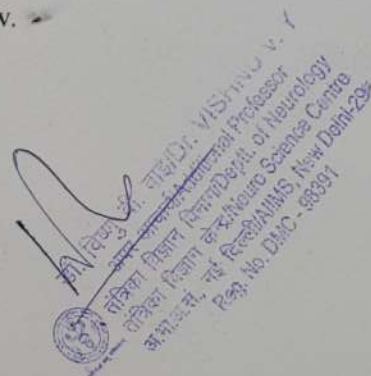 v.
डॉ. विष्णु वी. वाइ/Dr. VISHNU V. Y
अपर आचार्य/Additional Professor
तंत्रिका विज्ञान विभाग/Deptt. of Neurology
तंत्रिका विज्ञान केन्द्र/Neuro Science Centre
अ.भा.आ.सं., नई दिल्ली/AIIMS, New Delhi-29
Reg. No. DMC - 98391